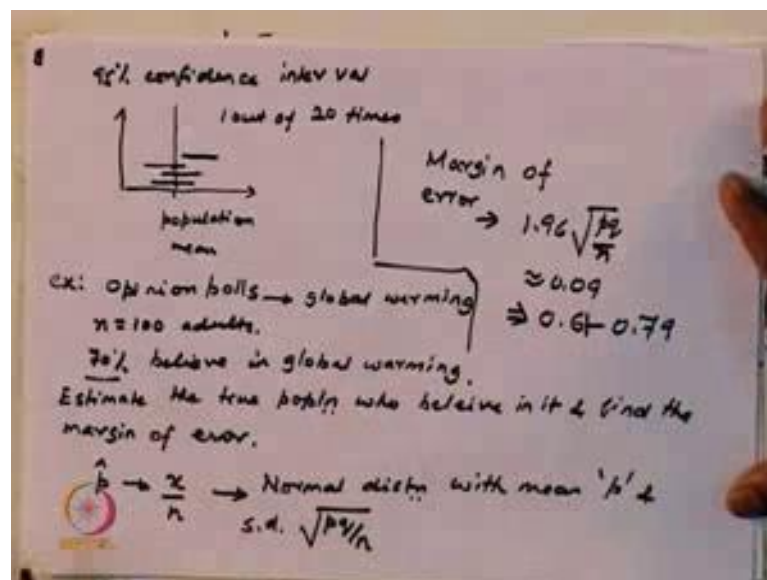 95% confidence interval
1 out of 20 times
population
mean
Margin of
error → 1.96 √pq/n
≈ 0.09
⇒ 0.61 - 0.79
ex: opinion polls → global warming
n = 100 adults.
70% believe in global warming.
Estimate the true popln who beleive in it & find the
margin of error.
p̂ → x/n → Normal distn with mean 'p' &
s.d. √pq/n